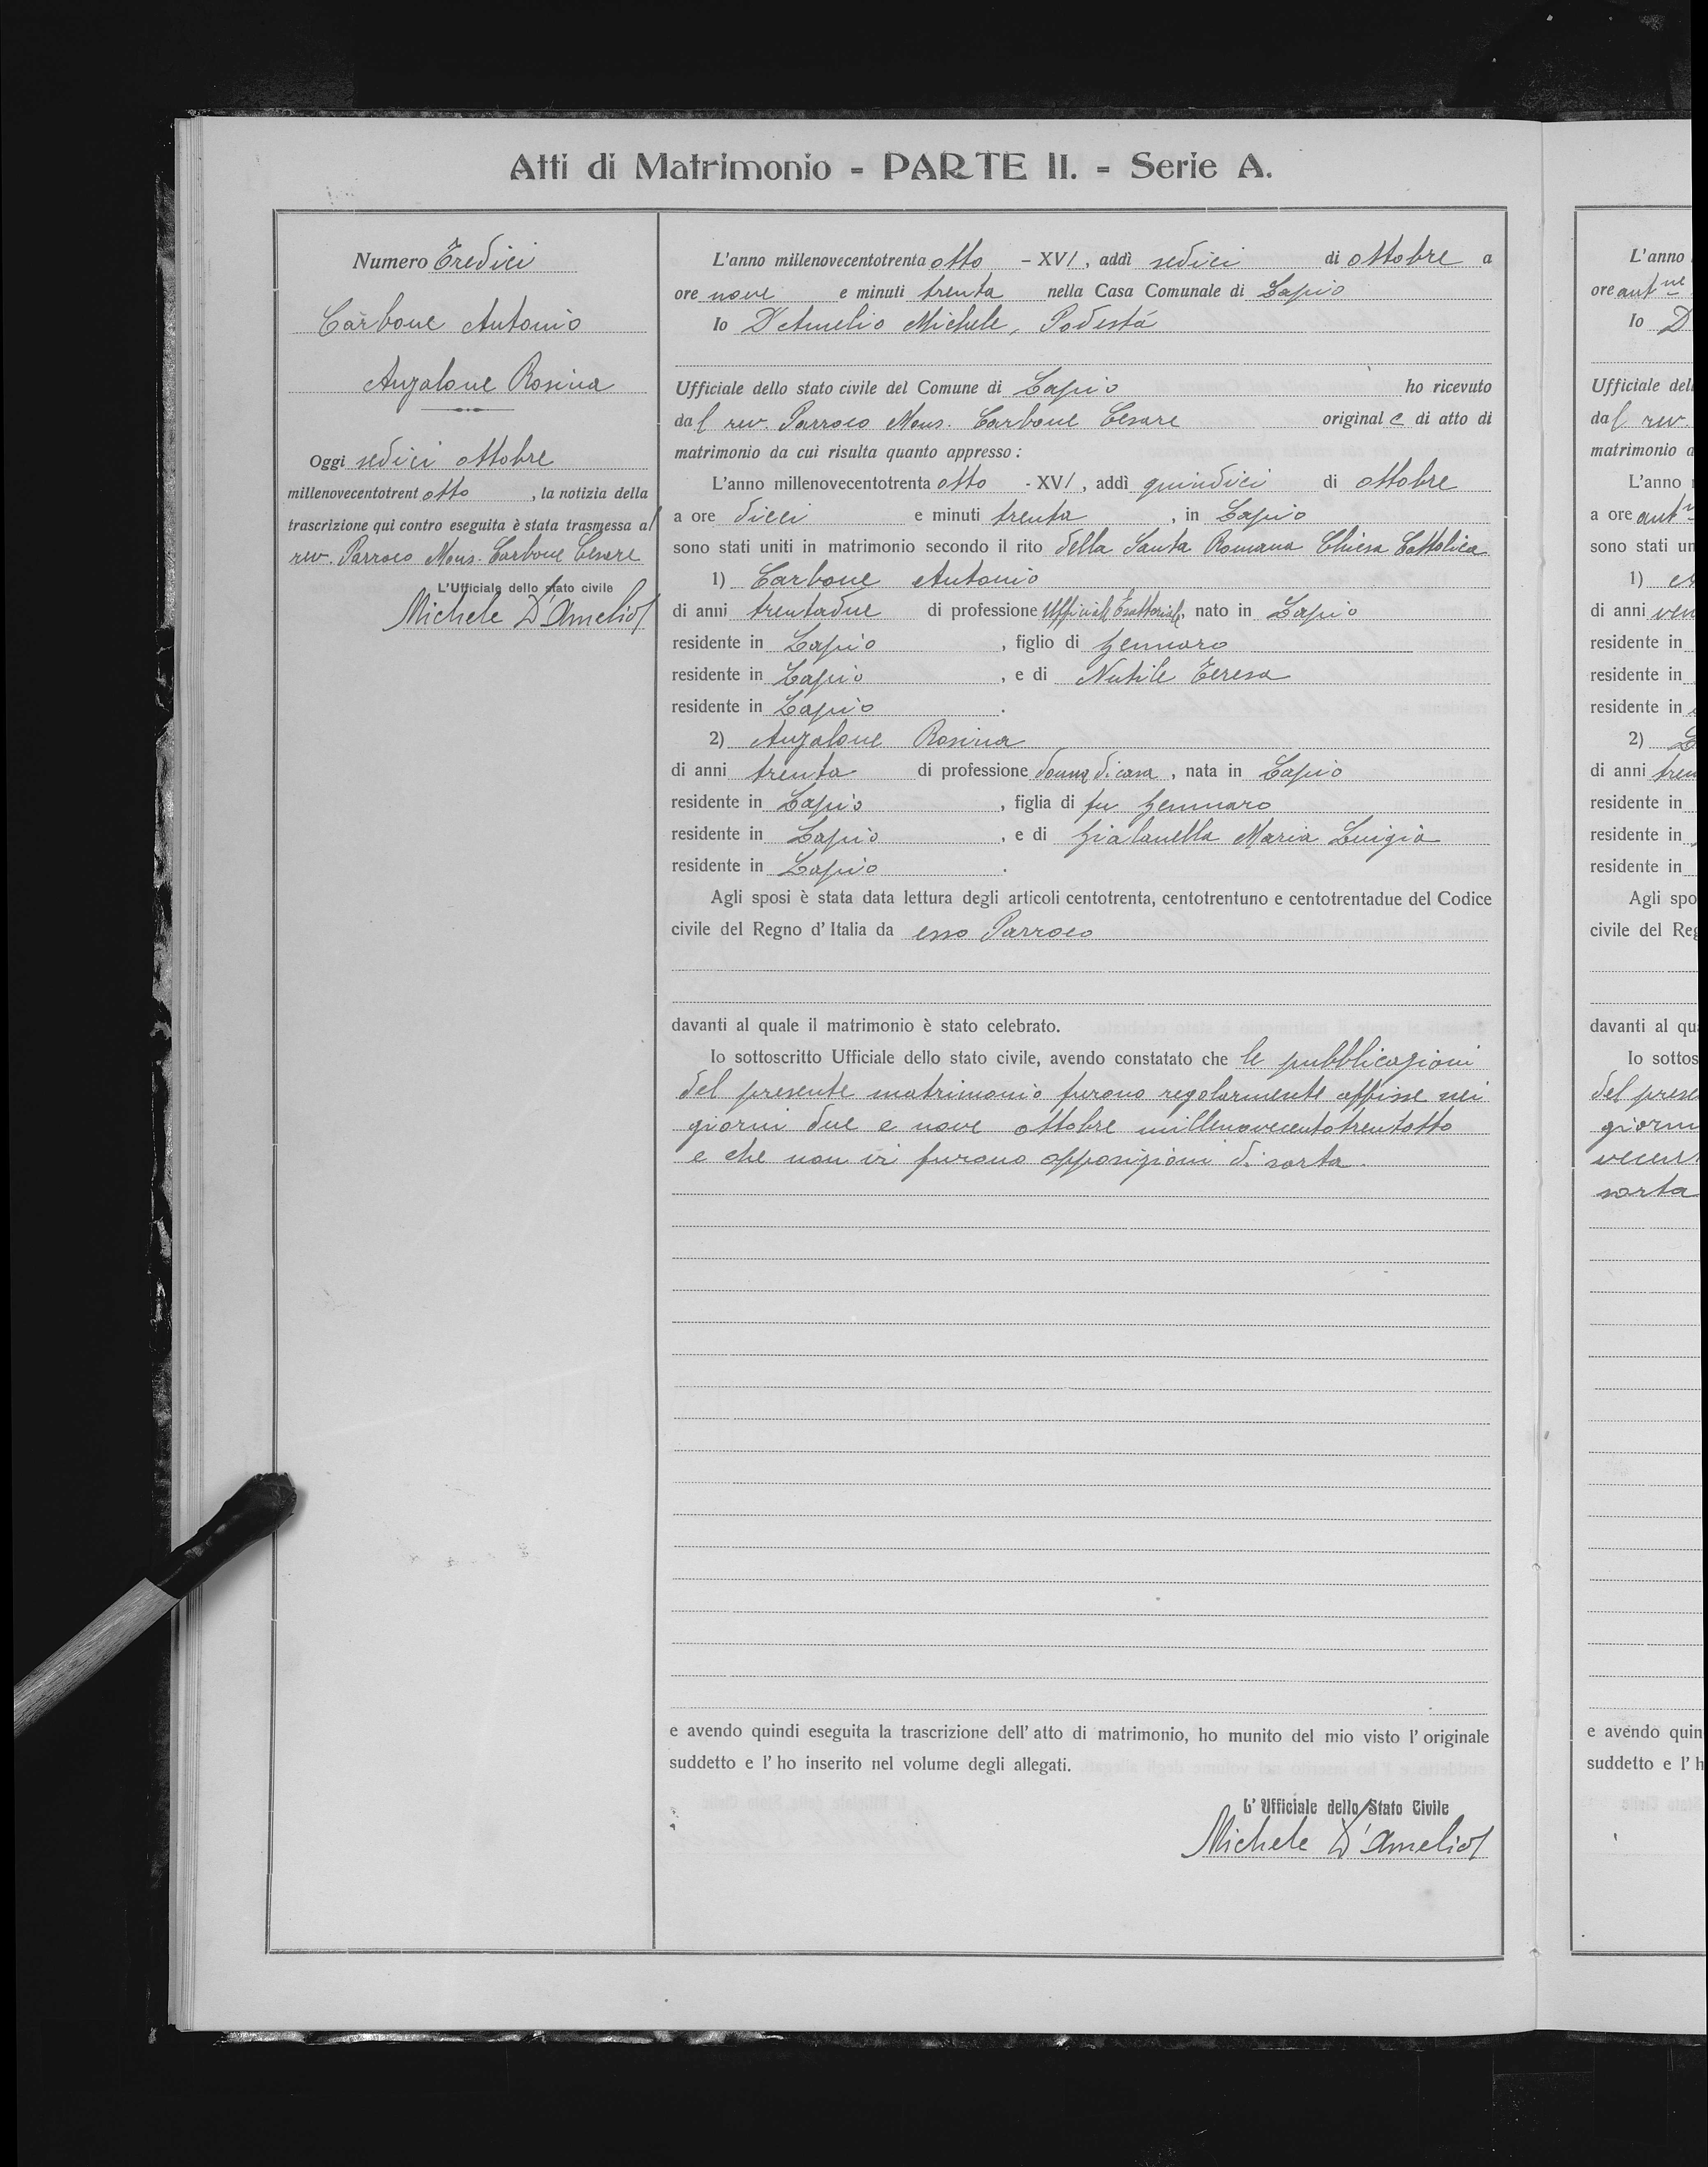 Atti di Matrimonio - PARTE II. - Serie A.
Numero Tredici
Carbone Antonio
Anzalone Rosina
Oggi sedici ottobre
millenovecentotrent otto , la notizia della
trascrizione qui contro eseguita è stata trasmessa al
rev. Parroco Mons. Carbone Cesare
L'Ufficiale dello stato civile
Michele D'Amelio
L'anno millenovecentotrenta otto - XVI, addì sedici di ottobre a
ore nove e minuti trenta nella Casa Comunale di Lapio
Io D'Amelio Michele, Podestà
Ufficiale dello stato civile del Comune di Lapio ho ricevuto
dal rev. Parroco Mons. Carbone Cesare originale di atto di
matrimonio da cui risulta quanto appresso :
L'anno millenovecentotrenta otto - XVI, addì quindici di ottobre
a ore dieci e minuti trenta , in Lapio
sono stati uniti in matrimonio secondo il rito della Santa Romana Chiesa Cattolica
1) Carbone Antonio
di anni trentadue di professione Ufficiale Esattoriale, nato in Lapio
residente in Lapio , figlio di Gennaro
residente in Lapio , e di Nutile Teresa
residente in Lapio .
2) Anzalone Rosina
di anni trenta di professione donna di casa , nata in Lapio
residente in Lapio , figlia di fu Gennaro
residente in Lapio , e di Gialanella Maria Luigia
residente in Lapio .
Agli sposi è stata data lettura degli articoli centotrenta, centotrentuno e centotrentadue del Codice
civile del Regno d' Italia da esso Parroco
davanti al quale il matrimonio è stato celebrato.
Io sottoscritto Ufficiale dello stato civile, avendo constatato che le pubblicazioni
del presente matrimonio furono regolarmente affisse nei
giorni due e nove ottobre millenovecentotrentotto
e che non vi furono opposizioni di sorta.
e avendo quindi eseguita la trascrizione dell' atto di matrimonio, ho munito del mio visto l' originale
suddetto e l' ho inserito nel volume degli allegati.
L' Ufficiale dello Stato Civile
Michele D'Amelio
L'anno
ore ant ne
Io D
Ufficiale del
dal rev.
matrimonio
L'anno
a ore ant
sono stati un
1)
di anni ven
residente in
residente in
residente in
2)
di anni tren
residente in
residente in
residente in
Agli spo
civile del Reg
davanti al qu
Io sottos
del prese
giorni
vecen
sorta
e avendo quin
suddetto e l' h